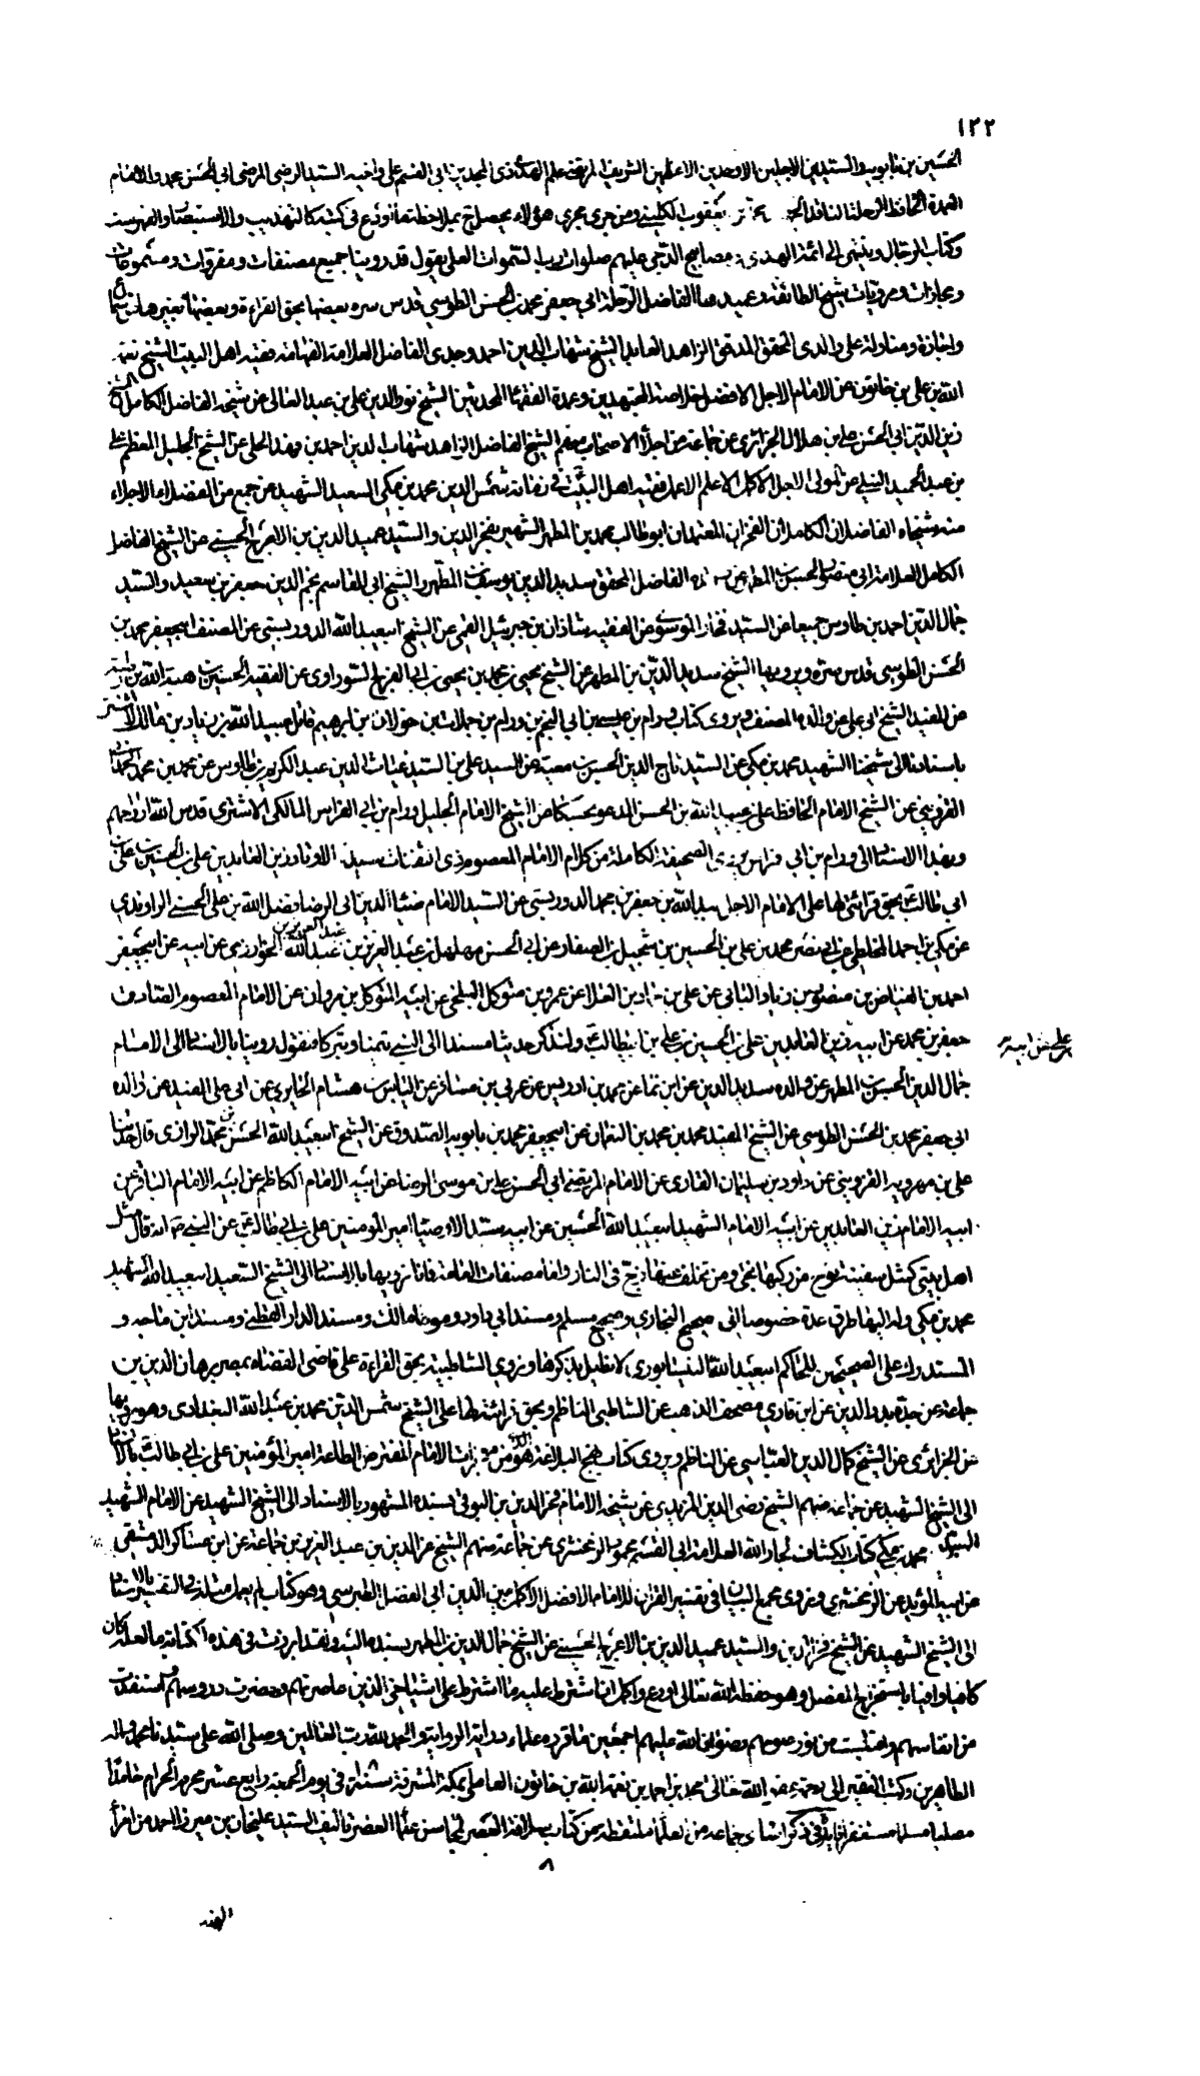 ١٢٢
الحسين بن بابويه والسيدين الاجلين الاوحدين الاعظمين الشريف المرتضى علم الهدى ذى المجدين ابى القسم على واخيه السيد الرضى المرضى ابى الحسن محمد والامام
العمدة الحافظ الرحلة الناقد يعقوب الكلينى ومن جرى مجرى هؤلاء يحصل بملاحظة ما اودع فى كتبه كالتهذيب والاستبصار والفهرست
وكتاب الرجال وينتهى الى ائمة الهدى مصابيح الدجى عليهم صلوات رب السموات العلى يقول قد روينا جميع مصنفات ومقروات ومسموعات
ومجازات ومرويات شيخ الطائفة وعميدها الفاضل الرحلة ابى جعفر محمد بن الحسن الطوسى قدس سره بعضها بحق القراءة وبعضها بغيرها
واجازة ومناولة على والدى المحقق المدقق الزاهد العابد الشيخ شهاب الدين احمد وجدى الفاضل العلامة الفهامة فقيه اهل البيت الشيخ نعمة
الله بن على بن خاتون عن الامام الاجل الافضل خلاصة المجتهدين وعمدة الفقهاء المحدثين الشيخ نور الدين على بن عبد العالى عن شيخه الفاضل الكامل الشيخ
زين الدين ابى الحسن على بن هلال الجزائرى عن جماعة من اجلاء الاصحاب منهم الشيخ الفاضل الزاهد شهاب الدين احمد بن فهد الحلى عن الشيخ الجليل المعظم على
بن عبد الحميد النيلى عن المولى الاجل الاكمل الاعلم الاعمل فقيه اهل البيت فى زمانه شمس الدين محمد بن مكى السعيد الشهيد عن جمع من الفضلاء الاجلاء
منهم شيخاه الفاضلان الكاملان الفخران المعتمدان ابو طالب محمد بن المطهر الشهير بفخر الدين والسيد عميد الدين بن الاعرج الحسينى عن الشيخ الفاضل
الكامل العلامة ابى منصور الحسن بن المطهر عن والده الفاضل المحقق سديد الدين يوسف بن المطهر والشيخ ابى القاسم نجم الدين جعفر بن سعيد والسيد
جمال الدين احمد بن طاوس جميعا عن السيد فخار الموسوى عن الفقيه شاذان بن جبرئيل القمى عن الشيخ ابى عبد الله الدوريستى عن المصنف ابى جعفر محمد بن
الحسن الطوسى قدس سره ويرويها الشيخ سديد الدين بن المطهر عن الشيخ يحيى بن محمد بن يحيى بن ابى الفرج السوراوى عن الفقيه الحسين بن هبة الله بن رطبة
عن المفيد الشيخ ابى على عن والده المصنف ويروى كتاب ورام بن عيسى بن ابى النجم بن ورام بن حملان بن خولان بن ابرهيم قاتل عبيد الله بن زياد بن مالك الاشتر
باسنادنا الى شيخنا الشهيد محمد بن مكى عن السيد تاج الدين الحسن بن معية عن السيد على بن السيد غياث الدين عبد الكريم بن طاوس عن محمد بن محمد
القزوينى عن الشيخ الامام الحافظ على بن عبيد الله بن الحسن المدعو بحسكا عن الشيخ الامام الجليل ورام بن ابى الفراس المالكى الاشترى قدس الله ارواحهم
وبهذا الاسناد الى ورام بن ابى فراس يروى الصحيفة الكاملة من كلام الامام المعصوم ذى الثفنات سيد الاوتاد زين العابدين على بن الحسين بن على بن
ابى طالب بحق قرائته لها على الامام الاجل عبد الله بن جعفر بن محمد الدوريستى عن السيد الامام ضياء الدين ابى الرضا فضل الله بن على الحسنى الراوندى
عن مكى بن احمد المخلطى عن ابى نصر محمد بن على بن الحسين بن شجيل بن الصفار عن ابى الحسن مهلهل بن عبد العزيز بن عبد الله الخوارزمى عن ابيه عن ابى جعفر
احمد بن الفياض بن منصور بن زياد عن على بن حماد بن العلا عن عمرو بن متوكل البلخى عن ابيه المتوكل بن مروان عن الامام المعصوم الصادق
جعفر بن محمد عن ابيه زين العابدين على بن الحسين بن على بن ابيطالب ولنذكر حديثا مسندا الى النبى تيمنا وتبركا فنقول روينا بالاسناد الى الامام
على عن ابيه
جمال الدين الحسن بن المطهر عن والده سديد الدين عن ابن نما عن محمد بن ادريس عن عربى بن مسافر عن الياس بن هشام الحايرى عن ابى على المفيد عن والده
ابى جعفر محمد بن الحسن الطوسى عن الشيخ المفيد محمد بن محمد بن النعمان عن ابى جعفر محمد بن بابويه الصدوق عن الشيخ ابى عبد الله الحسن بن محمد الرازى قال حدثنا
على بن مهرويه القزوينى عن داود بن سليمان الغازى عن الامام المرتضى ابى الحسن على بن موسى الرضا عن ابيه الامام الكاظم عن ابيه الامام الباقر عن
ابيه الامام زين العابدين عن ابيه الامام الشهيد ابى عبد الله الحسين عن ابيه سيد الاوصياء امير المؤمنين على بن ابى طالب عن النبى انه قال مثل
اهل بيتى كمثل سفينة نوح من ركبها نجى ومن تخلف عنها زج فى النار واما مصنفات العامة فانا نرويها باسنادنا الى الشيخ السعيد ابى عبد الله الشهيد
محمد بن مكى وله اليها طرق عدة خصوصا الى صحيح البخارى وصحيح مسلم ومسند ابى داود وموطا مالك ومسند الدار القطنى ومسند ابن ماجه و
المستدرك على الصحيحين للحاكم ابى عبد الله النيسابورى لا نطيل بذكرها ونروى الشاطبية بحق القراءة على قاضى القضاة بمصر برهان الدين بن
جماعة عن جده بدر الدين عن ابن قارى مصحف الذهب عن الشاطبى الناظم وبحق قراءته لها على الشيخ شمس الدين محمد بن عبد الله البغدادى وهو يرويها
عن الجزائرى عن الشيخ كمال الدين العباسى عن الناظم ويروى كتاب نهج البلاغة الامام المفترض الطاعة امير المؤمنين على بن ابى طالب بالاسناد
الى الشيخ الشهيد عن جماعة منهم الشيخ رضى الدين المزيدى عن شيخه الامام فخر الدين بن البوقى بسنده المشهور بالاسناد الى الشيخ الشهيد عن الامام الشهيد
محمد بن مكى كتاب الكشاف لجار الله العلامة ابى القسم محمود الزمخشرى عن جماعة منهم الشيخ عز الدين بن عبد العزيز بن جماعة عن ابن عساكر الدمشقى
عن المؤيد عن الزمخشرى ونروى مجمع البيان فى تفسير القران للامام الافضل الاكمل امين الدين ابى الفضل الطبرسى وهو كتاب لم يعمل مثله فى التفسير بالاسناد
الى الشيخ الشهيد عن الشيخ فخر الدين والسيد عميد الدين بن الاعرج الحسينى عن الشيخ جمال الدين بن المطهر بسنده اليه ولقد ابرزت فى هذه
كافيا وافيا باستخراج المفصل وهو حفظه الله تعالى اورع واكمل ان اشترط عليه ما اشترط على اشياخى الذين عاصرتهم وحضرت دروسهم واستفدت
من انفاسهم واقتبست من نور علومهم رضوان الله عليهم اجمعين ما قرره علماء دراية الرواية والحمد لله رب العالمين وصلى الله على سيدنا محمد واله
الطاهرين وكتب الفقير الى رحمة الله تعالى محمد بن احمد بن نعمة الله بن خاتون العاملى بمكة المشرفة سنة فى يوم الجمعة رابع عشر محرم الحرام حامدا
مصليا مسلما مستغفرا فائدة فى ذكر اشعار جماعة من العلماء ملتقطة من كتاب سلافة العصر لمحاسن علماء العصر تاليف السيد عليخان بن ميرزا احمد من افراد
٨
الهند